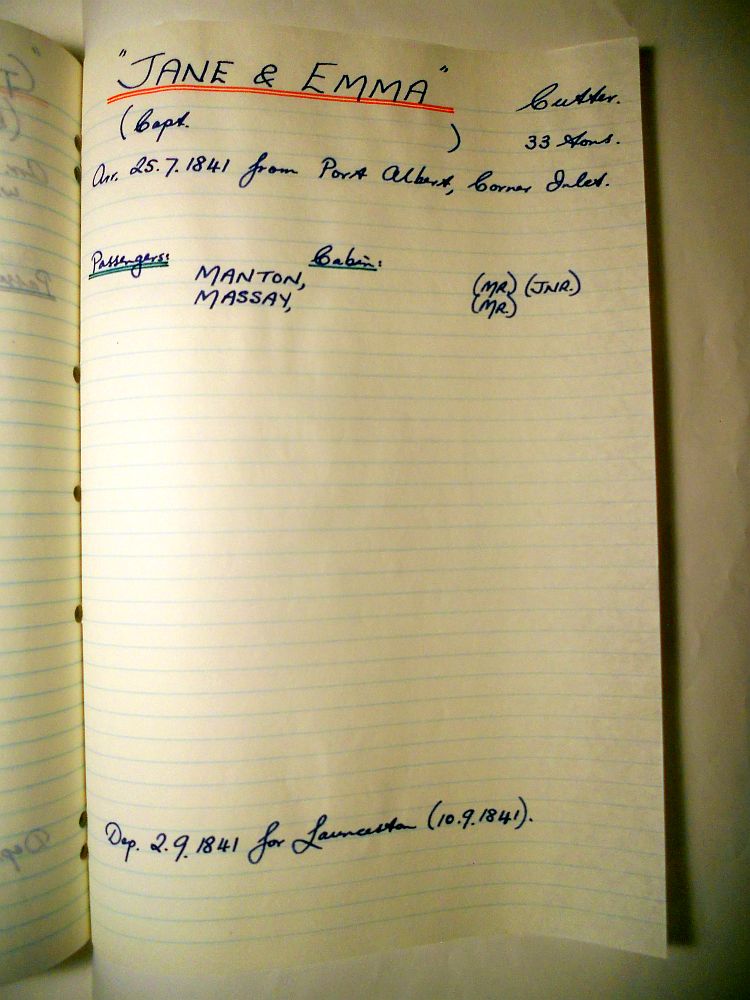 "JANE & EMMA" Cutter.
(Capt. ) 33 tons.
Arr. 25.7.1841 from Port Albert, Corner Inlet.
Passengers: Cabin:
MANTON, (MR.) (JNR.)
MASSAY, (MR.)
Dep. 2.9.1841 for Launceston (10.9.1841).